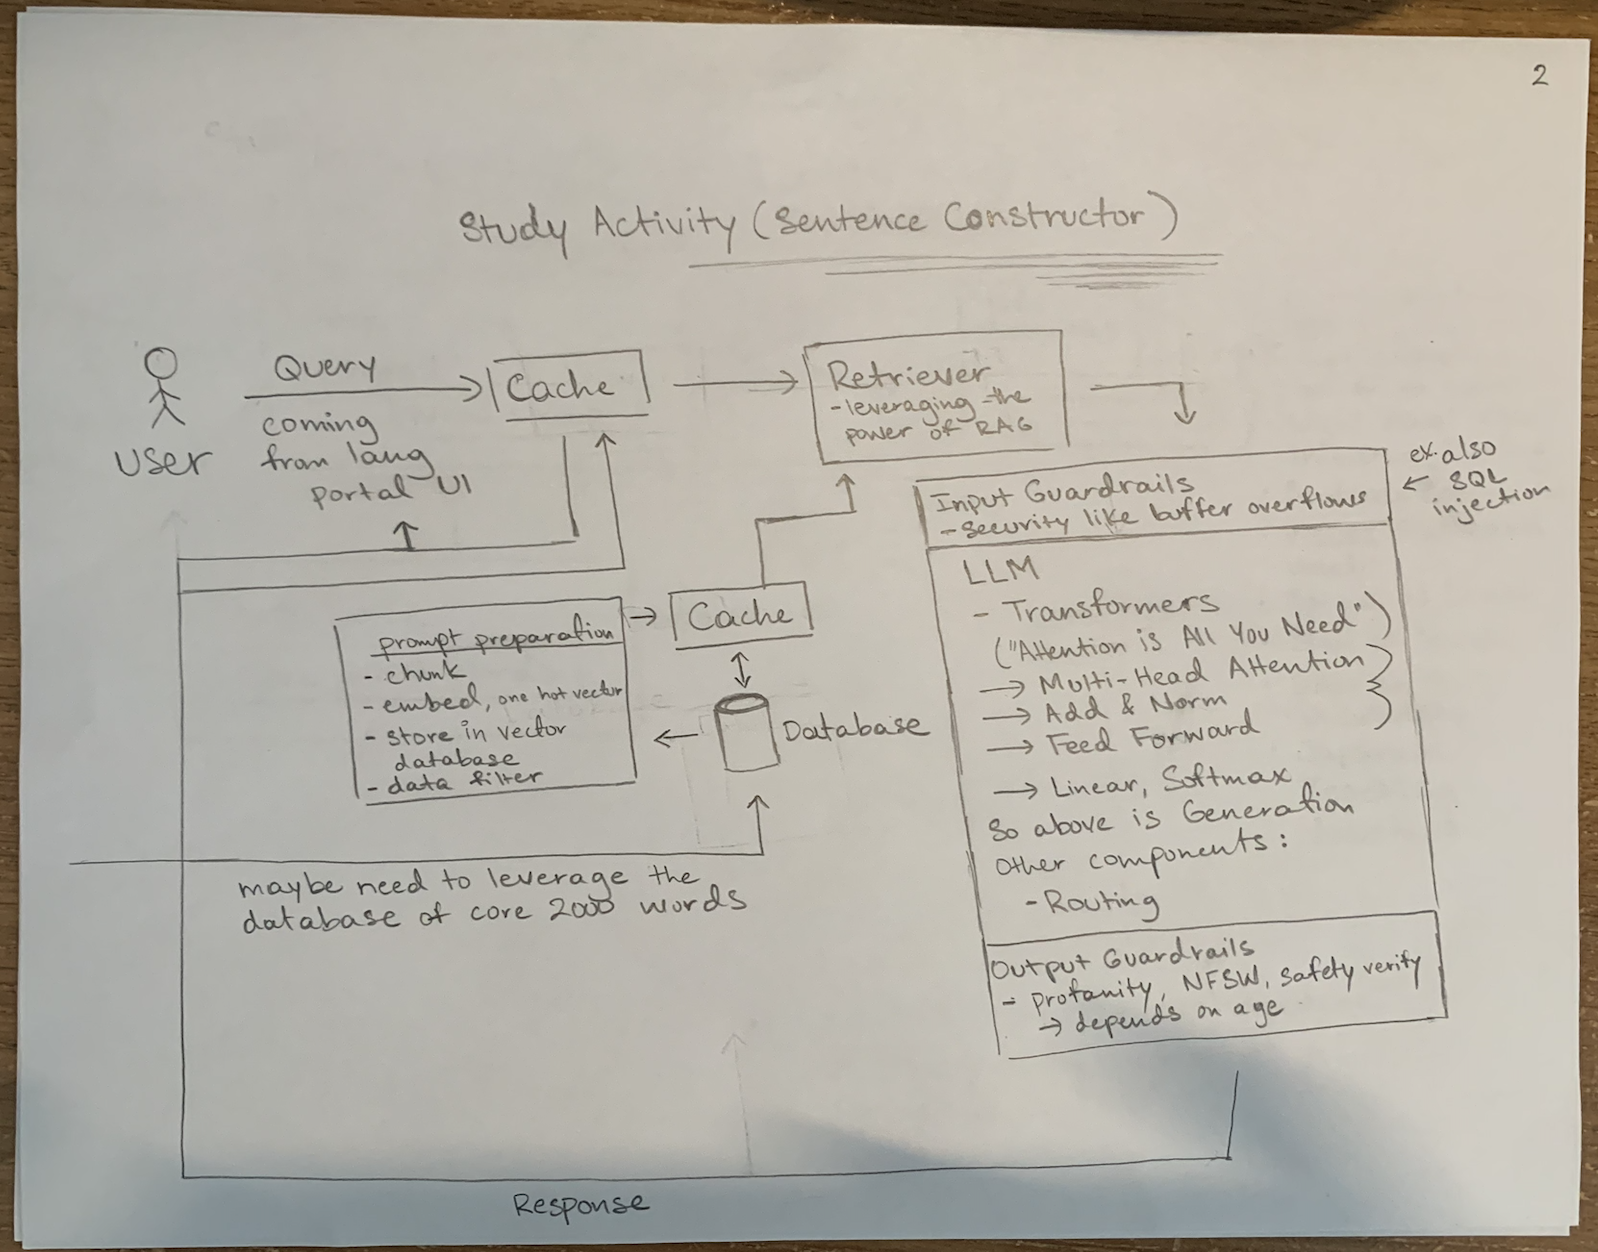 2
Study Activity (Sentence Constructor)
Query
coming
from lang
portal UI
User
Cache
Retriever
- leveraging the
power of RAG
Input Guardrails
- security like buffer overflows
ex. also
← SQL
injection
LLM
- Transformers
("Attention is All You Need")
→ Multi-Head Attention
→ Add & Norm
→ Feed Forward
→ Linear, Softmax
So above is Generation
Other components:
- Routing
Output Guardrails
- profanity, NFSW, safety verify
→ depends on age
Cache
prompt preparation
- chunk
- embed, one hot vector
- store in vector
database
- data filter
Database
maybe need to leverage the
database of core 2000 words
Response